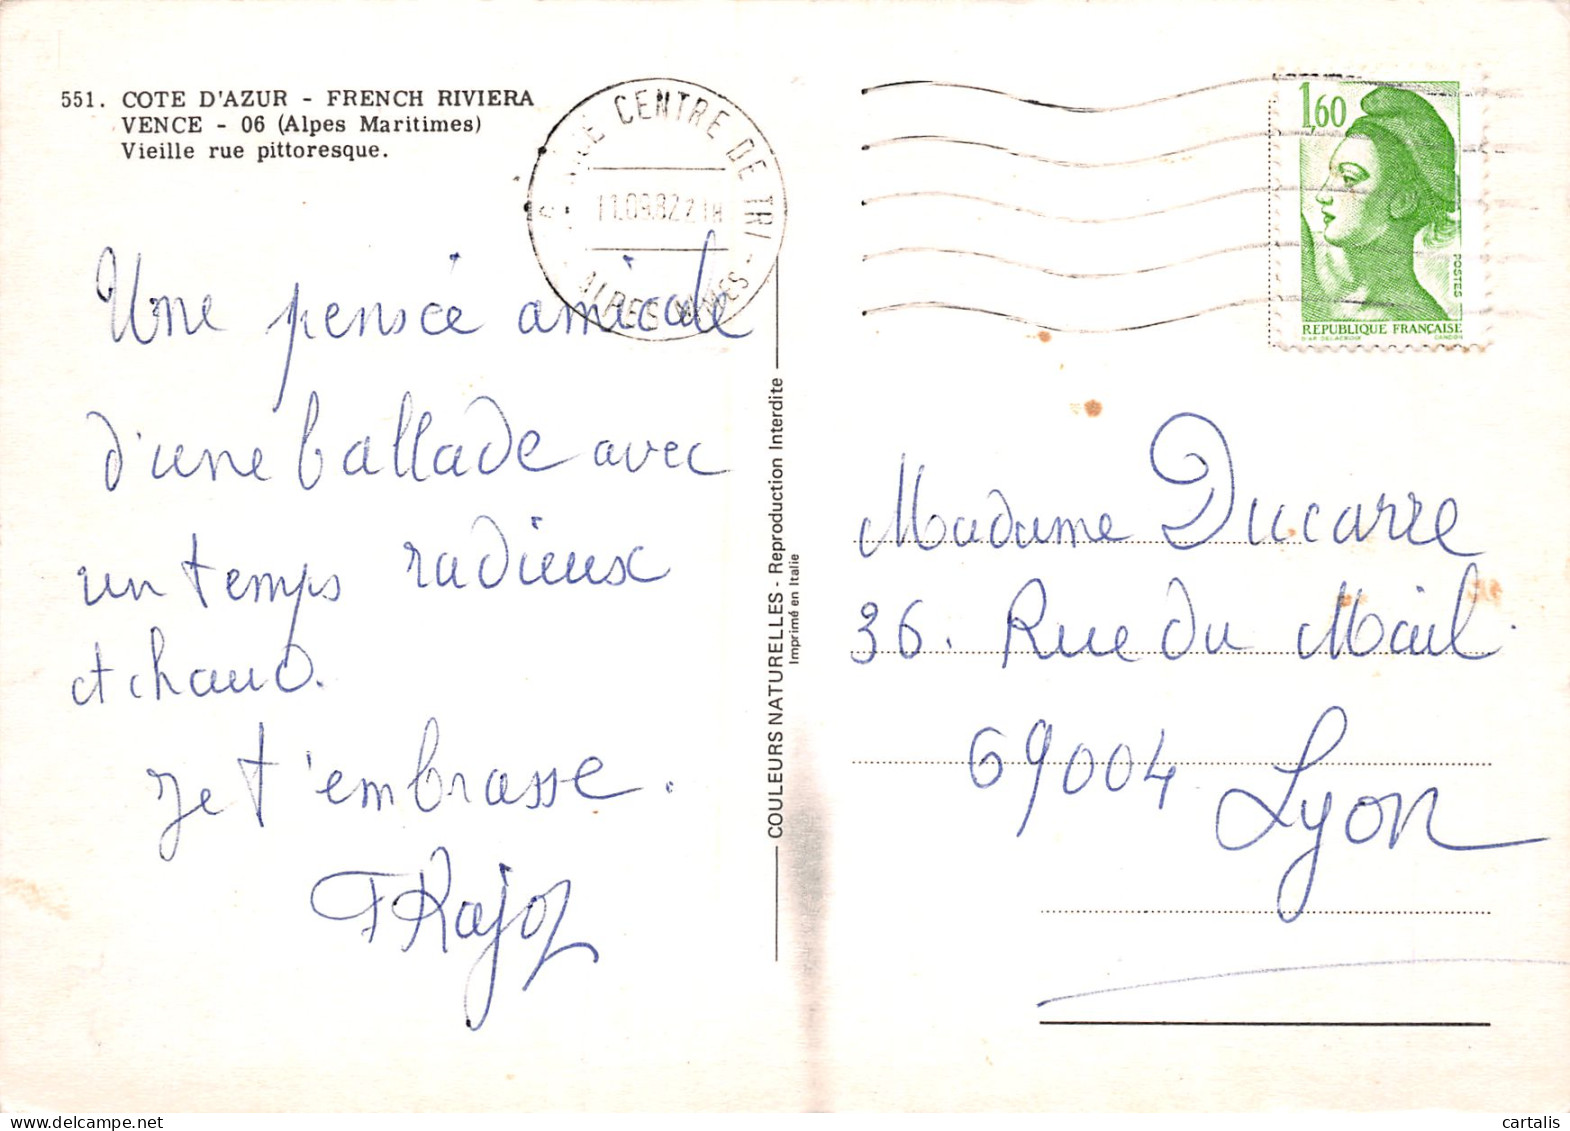 551. COTE D'AZUR - FRENCH RIVIERA
VENCE - 06 (Alpes Maritimes)
Vieille rue pittoresque.
CENTRE DE TRI -
11.09.82
ALPES MMES
1,60
POSTES
REPUBLIQUE FRANÇAISE
D'AP. DELACROIX GANDON
Une pensée amicale
d'une ballade avec
un temps radieux
et chaud.
Je t'embrasse.
COULEURS NATURELLES - Reproduction Interdite
Imprimé en Italie
Madame Ducarre
36. Rue du Mail.
69004
Lyon
cartalis